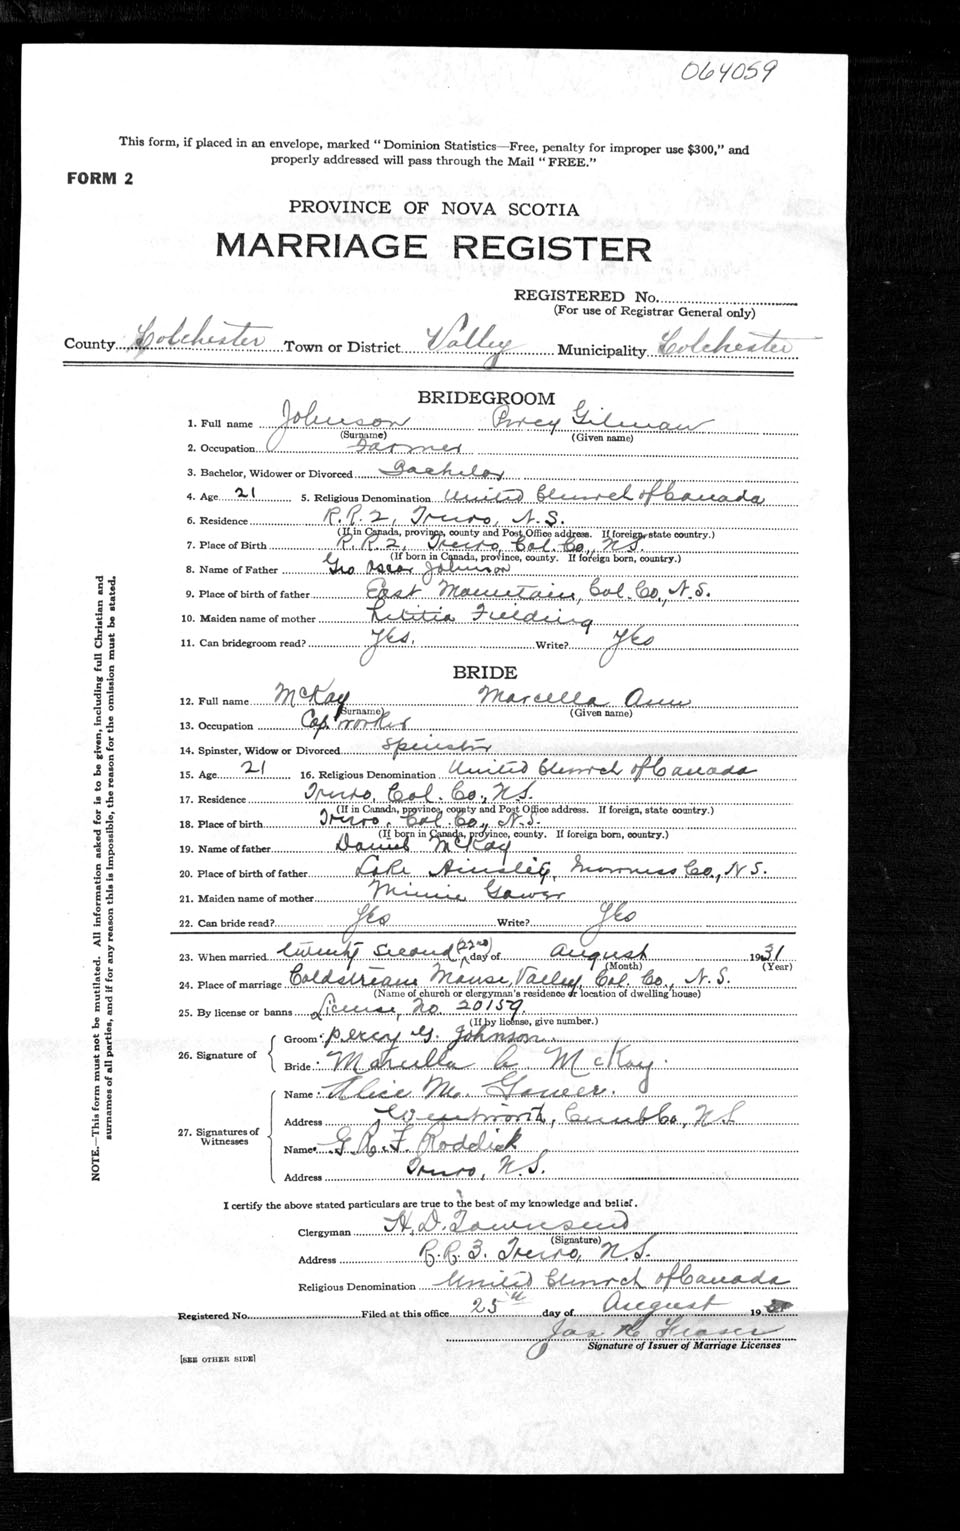 064059
This form, if placed in an envelope, marked "Dominion Statistics—Free, penalty for improper use $300," and
properly addressed will pass through the Mail "FREE."
FORM 2
PROVINCE OF NOVA SCOTIA
MARRIAGE REGISTER
REGISTERED No.
(For use of Registrar General only)
County Colchester Town or District Valley Municipality Colchester
BRIDEGROOM
1. Full name Johnson Percy Gilman
(Surname) (Given name)
2. Occupation Farmer
3. Bachelor, Widower or Divorced Bachelor
4. Age 21 5. Religious Denomination United Church of Canada
6. Residence R.R. 2, Truro, N.S.
(If in Canada, province, county and Post Office address. If foreign, state country.)
7. Place of Birth R.R. 2, Truro, Col. Co., N.S.
(If born in Canada, province, county. If foreign born, country.)
8. Name of Father Geo Oscar Johnson
9. Place of birth of father East Mountain, Col. Co., N.S.
10. Maiden name of mother Letitia Fielding
11. Can bridegroom read? Yes. Write? Yes
BRIDE
12. Full name McKay Marcella Ann
(Surname) (Given name)
13. Occupation Cap. worker
14. Spinster, Widow or Divorced Spinster
15. Age 21 16. Religious Denomination United Church of Canada
17. Residence Truro, Col. Co., N.S.
(If in Canada, province, county and Post Office address. If foreign, state country.)
18. Place of birth Truro, Col. Co., N.S.
(If born in Canada, province, county. If foreign born, country.)
19. Name of father Daniel McKay
20. Place of birth of father Lake Ainslie, Inverness Co., N.S.
21. Maiden name of mother Minnie Gower
22. Can bride read? Yes Write? Yes
23. When married twenty second (22nd) day of August 1931
(Month) (Year)
24. Place of marriage Coldstream Manse, Valley, Col. Co., N.S.
(Name of church or clergyman's residence or location of dwelling house)
25. By license or banns License, No. 20159.
(If by license, give number.)
26. Signature of Groom: Percy G. Johnson.
Bride: Marcella A. McKay.
27. Signatures of Witnesses Name: Alice M. Gower.
Address Wentworth, Cumb Co., N.S.
Name G. R. F. Roddick
Address Truro, N.S.
I certify the above stated particulars are true to the best of my knowledge and belief.
Clergyman H. D. Townsend
(Signature)
Address R.R. 3. Truro, N.S.
Religious Denomination United Church of Canada
Registered No. Filed at this office 25th day of August 19
Jas Fraser
Signature of Issuer of Marriage Licenses
[SEE OTHER SIDE]
NOTE.—This form must not be mutilated. All information asked for is to be given, including full Christian and
surnames of all parties, and if for any reason this is impossible, the reason for the omission must be stated.